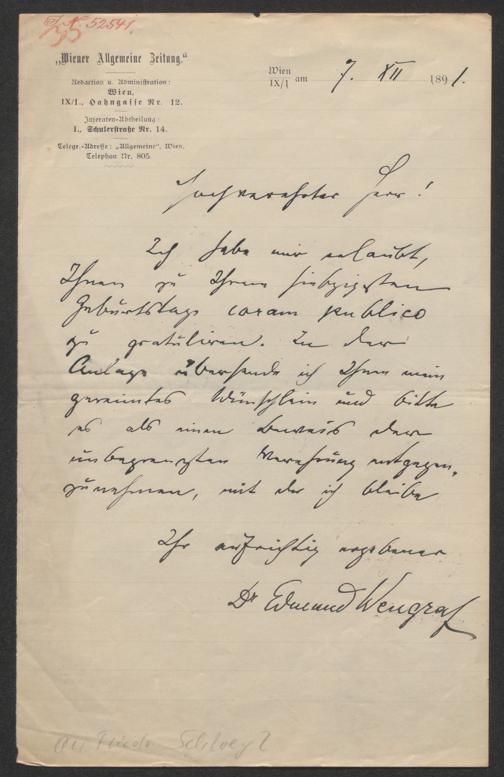 I. N. 52541
35
„Wiener Allgemeine Zeitung."
Redaction u. Administration:
Wien,
IX/1., Hahngasse Nr. 12.
Inseraten-Abtheilung:
I., Schulerstraße Nr. 14.
Telegr.-Adresse: „Allgemeine", Wien.
Telephon Nr. 805.
Wien
IX/1 am 7. XII 1891.
Hochverehrter Herr!
Ich habe mir erlaubt,
Ihnen zu Ihrem siebzigsten
Geburtstage coram publico
zu gratuliren. In der
Anlage übersende ich Ihnen mein
gereimtes Wünschlein und bitte
es als einen Beweis der
unbegrenzten Verehrung entgegen-
zunehmen, mit der ich bleibe
Ihr aufrichtig ergebener
Dr Edmund Wengraf
An Friedr. Schlögl